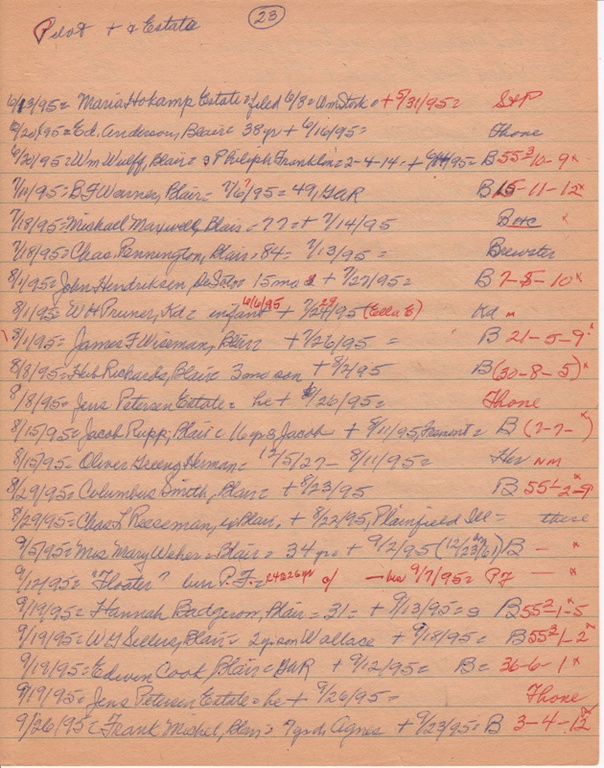 23
Pilot + & Estate
6/13/95= Maria Hokamp Estate= filed 6/8= Wm Stork= + 5/31/95= S&P
6/20/95= Ed. Anderson, Blair= 38 yr + 6/16/95= Thone
6/20/95= Wm Wulff, Blair= Philiph Franklin= 2-4-14= + 95= B 55-3 10-9 x
7/10/95= B F Warner, Blair= 7/6?/95= 49, GAR B 15-11-12 x
7/18/95= Michael Maxwell, Blair= 77= + 7/14/95 BHC x
7/18/95= Chas. Pennington, Blair= 84= 7/13/95= Brewster
8/1/95= John Hendriksen, DeSoto= 15 mo + 7/27/95= B 7-8-10 x
8/1/95= W H Pruner, Ka= infant 6/6/95 + 7/29/95 (Ella E) Ka
8/1/95= James F Wiseman, Blair + 7/26/95= B 21-5-9 x
8/8/95= Heb Richards, Blair= 3 mo son + 8/2/95 B (30-8-5) x
8/18/95= Jens Petersen Estate= he + 6/26/95= Thone
8/15/95= Jacob Rupp, Blair= 16 yrs, Jacob + 8/11/95, Fremont= B (7-7- ) x
8/15/95= Oliver Greeng Herman= 12/5/27- 8/11/95= Her NM
8/29/95= Columbus Smith, Blair= + 8/23/95 B 55-1-2-9 x
8/29/95= Chas L Reeseman, Blair, + 8/22/95, Plainfield Ill= there
9/5/95= Mrs Mary Weher= Blair= 34 yr= + 9/2/95 (12/23/61) B - x
9/12/95= "Floater" bur P. F.= 24@26 yr - bur 9/7/95= P F - x
9/19/95= Hannah Badgerow, Blair= 31= + 9/13/95= B 55-2-1-5 x
9/19/95= W G Sellers, Blair= 2 yr son Wallace + 9/18/95= B 55-3 1-2 x
9/19/95= Edwin Cook, Blair= GAR + 9/12/95 B= 36-6-1 x
9/19/95= Jens Petersen Estate= he + 9/26/95= Thone
9/26/95= Frank Michel, Blair= 7 yr d. Agnes + 9/23/95= B 3-4-12 x